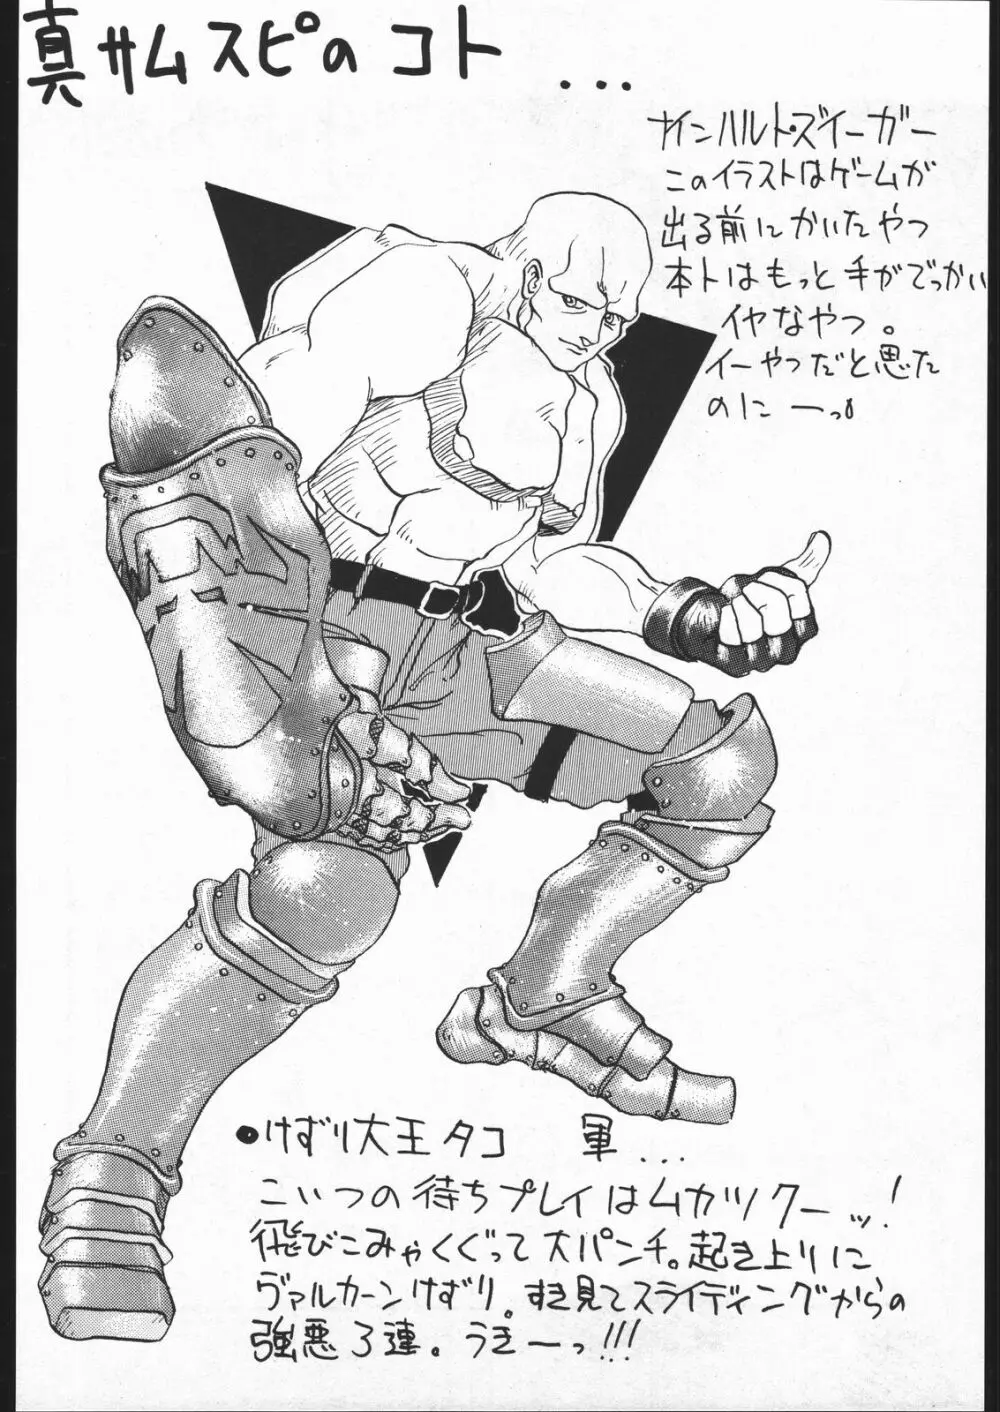 真サムスピのコト ...
ナインハルト・ズィーガー
このイラストはゲームが
出る前にかいたやつ
本トはもっと手がでっかい
イヤなやつ。
イーやつだと思た
のにーっ。
•けずり大王タコ 軍...
こいつの待ちプレイはムカツクーッ!
飛びこみゃくぐって大パンチ。起き上りに
ヴァルカーンけずり。すき見てスライディングからの
強悪3連。うぎーっ!!!